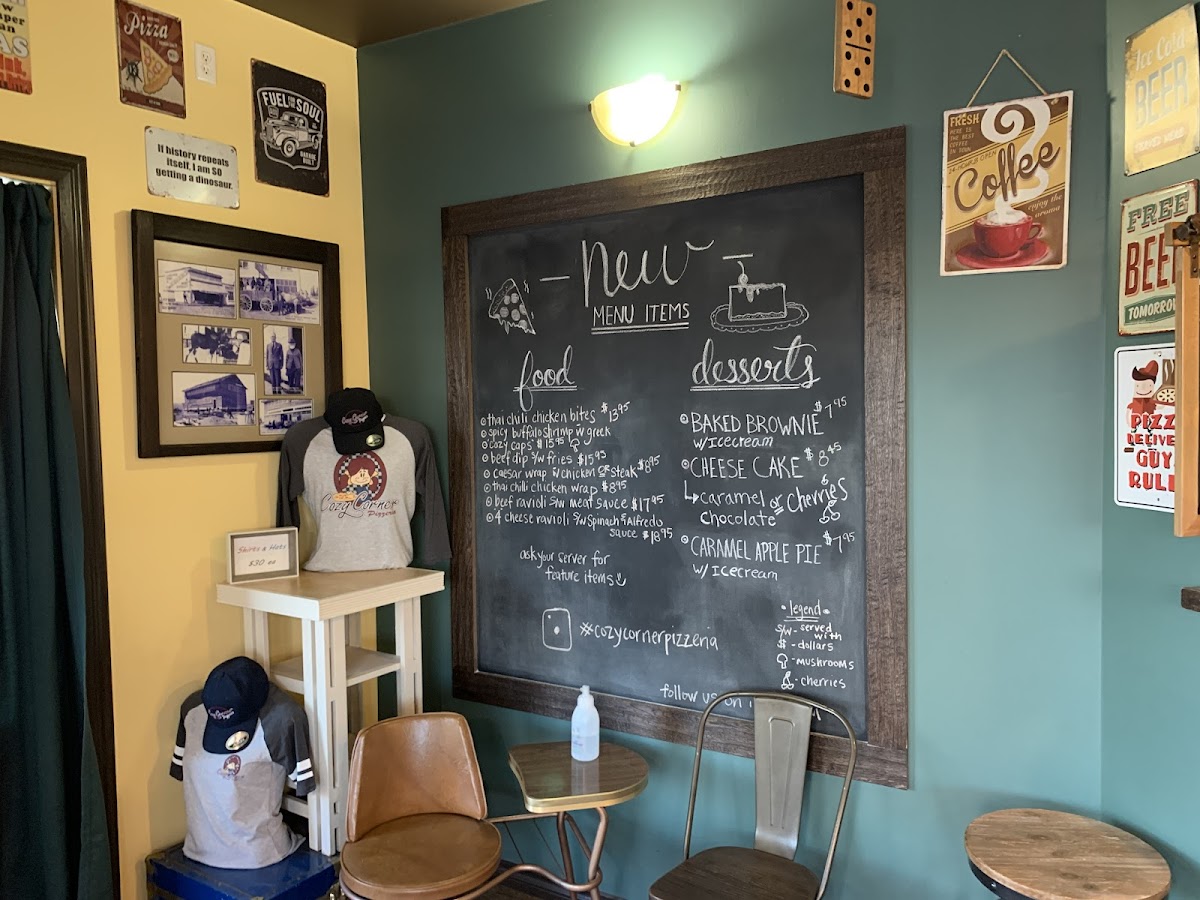 Pizza
FUEL FOR THE SOUL
GARAGE BUILT
If history repeats
itself, I am SO
getting a dinosaur.
Cozy Corner
Pizzeria
Shirts & Hats
$30.00
- New
MENU ITEMS
food
thai chili chicken bites $13.95
spicy buffalo shrimp w greek
cozy caps $15.95
beef dip s/w fries $15.95
caesar wrap w chicken or steak $8.95
thai chilli chicken wrap $8.95
beef ravioli s/w meat sauce $17.95
4 cheese ravioli s/w spinach & Alfredo
sauce $18.95
ask your server for
feature items
#cozycornerpizzeria
desserts
BAKED BROWNIE $7.95
w/Icecream
CHEESE CAKE $8.45
caramel or cherries
chocolate
CARAMEL APPLE PIE $7.95
w/ Icecream
legend
s/w - served
with
$ - dollars
- mushrooms
- cherries
follow us on
FRESH
HERE IS
THE BEST
COFFEE
IN TOWN
Coffee
enjoy the
aroma
Ice Cold
BEER
SERVED HERE
FREE
BEER
TOMORROW
PIZZA
DELIVERY
GUYS
RULE